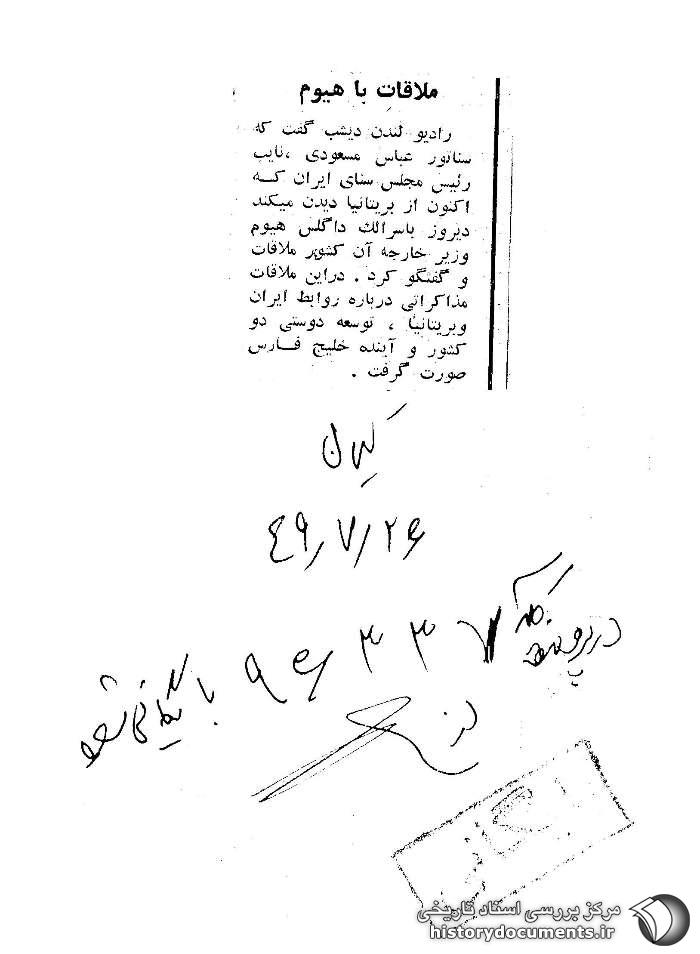 ملاقات با هیوم
رادیو لندن دیشب گفت که
سناتور عباس مسعودی ،نایب
رئیس مجلس سنای ایران کـــه
اکنون از بریتانیا دیدن میکند
دیروز باسرالک داگلس هیوم
وزیر خارجه آن کشور ملاقات
و گفتگو کرد . دراین ملاقات
مذاکراتی درباره روابط ایران
وبریتانیا ، توسعه دوستی دو
کشور و آینده خلیج فـــارس
صورت گرفت .
کیهان
۴۹/۷/۲۶
در پرونده بایگانی شود
بایگانی
مرکز بررسی اسناد تاریخی
historydocuments.ir